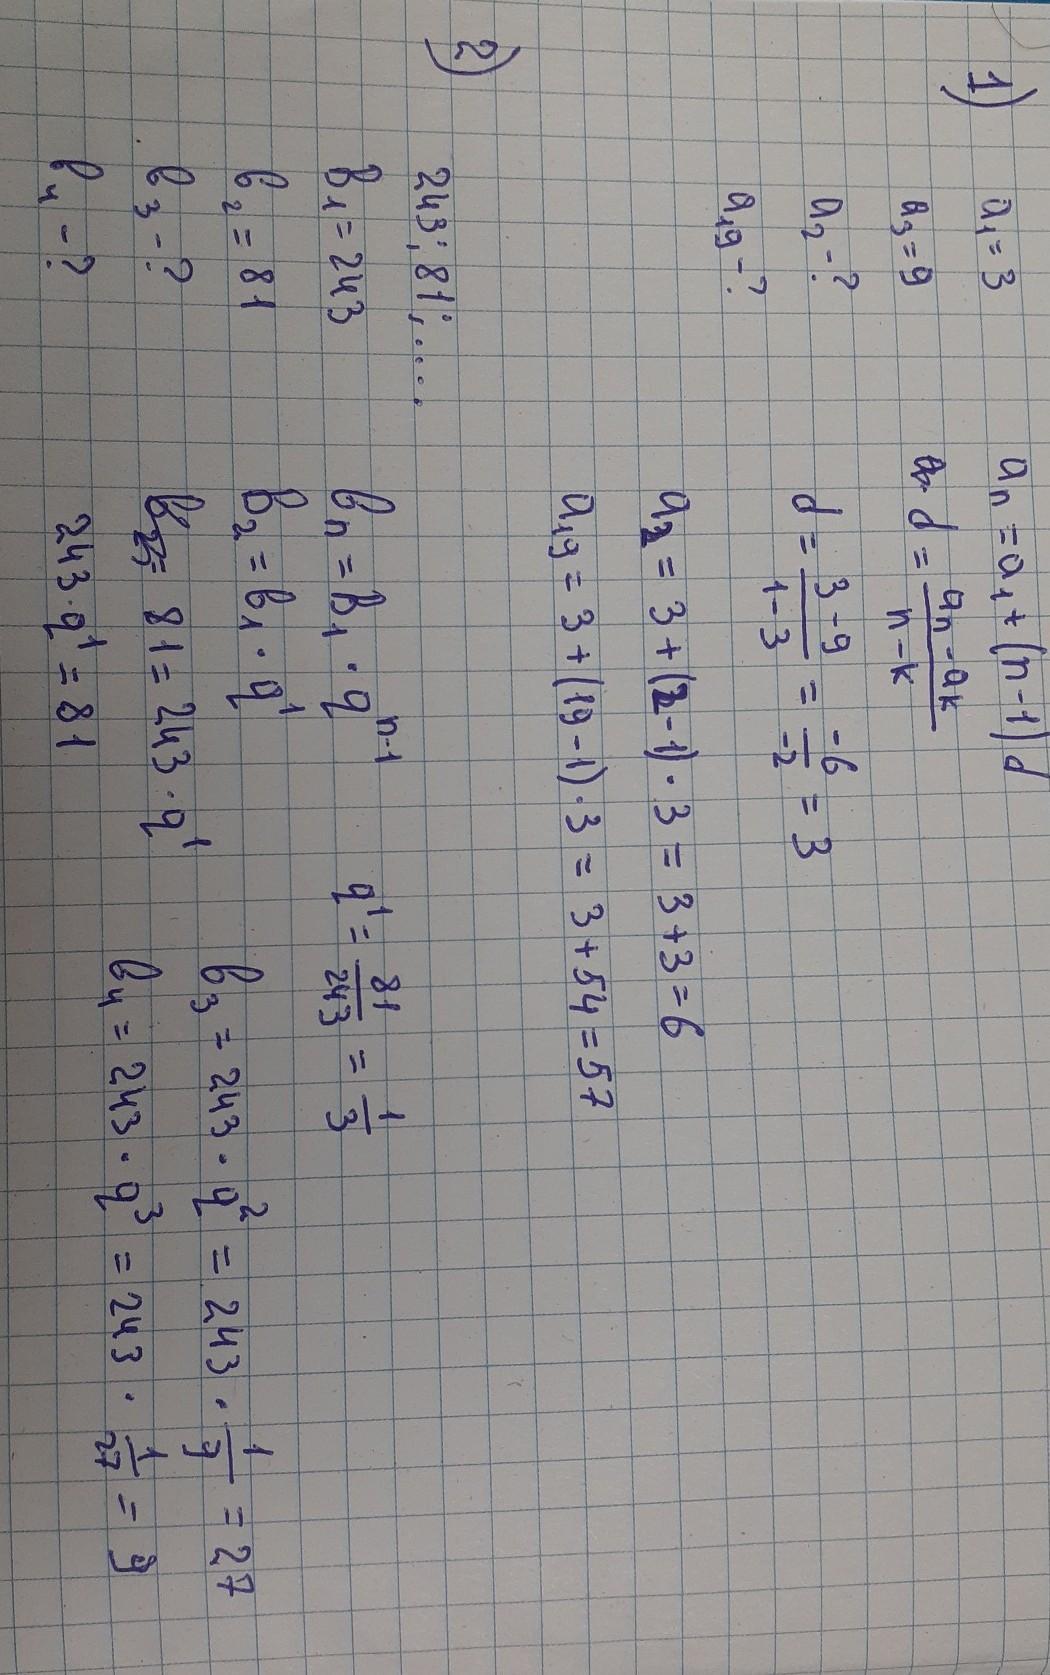 1) a₁ = 3
a₃ = 9
a₂ - ?
a₁₉ - ?
aₙ = a₁ + (n-1)d
d = (aₙ - aₖ)/(n - k)
d = (3 - 9)/(1 - 3) = -6/-2 = 3
a₂ = 3 + (2-1) · 3 = 3 + 3 = 6
a₁₉ = 3 + (19-1) · 3 = 3 + 54 = 57
2) 243; 81; .....
b₁ = 243
b₂ = 81
b₃ - ?
b₄ - ?
bₙ = b₁ · qⁿ⁻¹
b₂ = b₁ · q¹
81 = 243 · q¹
243 · q¹ = 81
q¹ = 81/243 = 1/3
b₃ = 243 · q² = 243 · 1/9 = 27
b₄ = 243 · q³ = 243 · 1/27 = 9